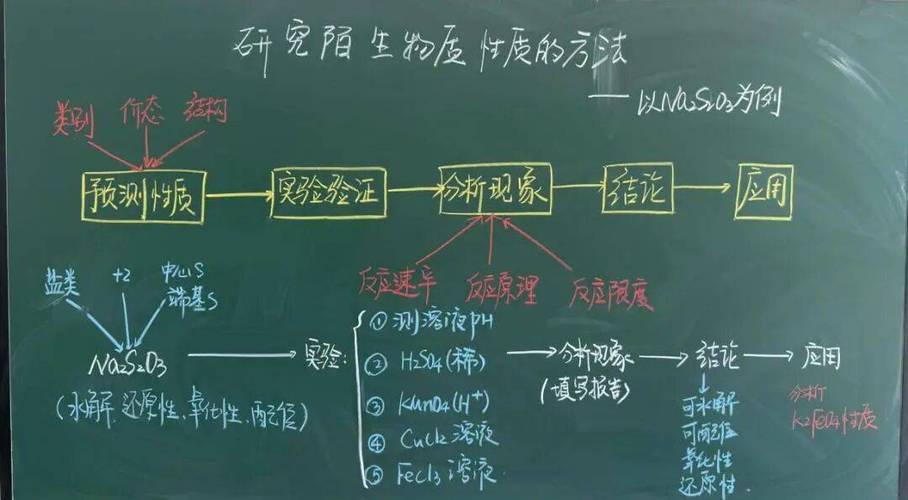 研究陌生物质性质的方法
——以Na₂S₂O₃为例
类别 价态 结构
预测性质 → 实验验证 → 分析现象 → 结论 → 应用
反应速率 反应原理 反应限度
盐类 +2 中心S
端基S
Na₂S₂O₃ → 实验: → 分析现象 → 结论 → 应用
(水解、还原性、氧化性、配位)
① 测溶液pH
② H₂SO₄(稀)
③ KMnO₄(H⁺)
④ CuCl₂溶液
⑤ FeCl₃溶液
(填写报告)
可水解
可配位
氧化性
还原性
分析
K₂FeO₄性质